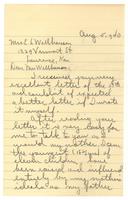 Aug 5-1940
Mrs E L Wellhausen
1329 Vermont St
Lawrence, Kan
Dear Mrs Wellhausen:
I received your very
excellent letter of the 5th
and couldn't of expected
a better letter if I wrote
it myself.
After reading your
letter it is very easy for
me to talk to you as I
would my Mother. I am
the youngest of
eleven children,
been raised and
with as high
ideals as my father